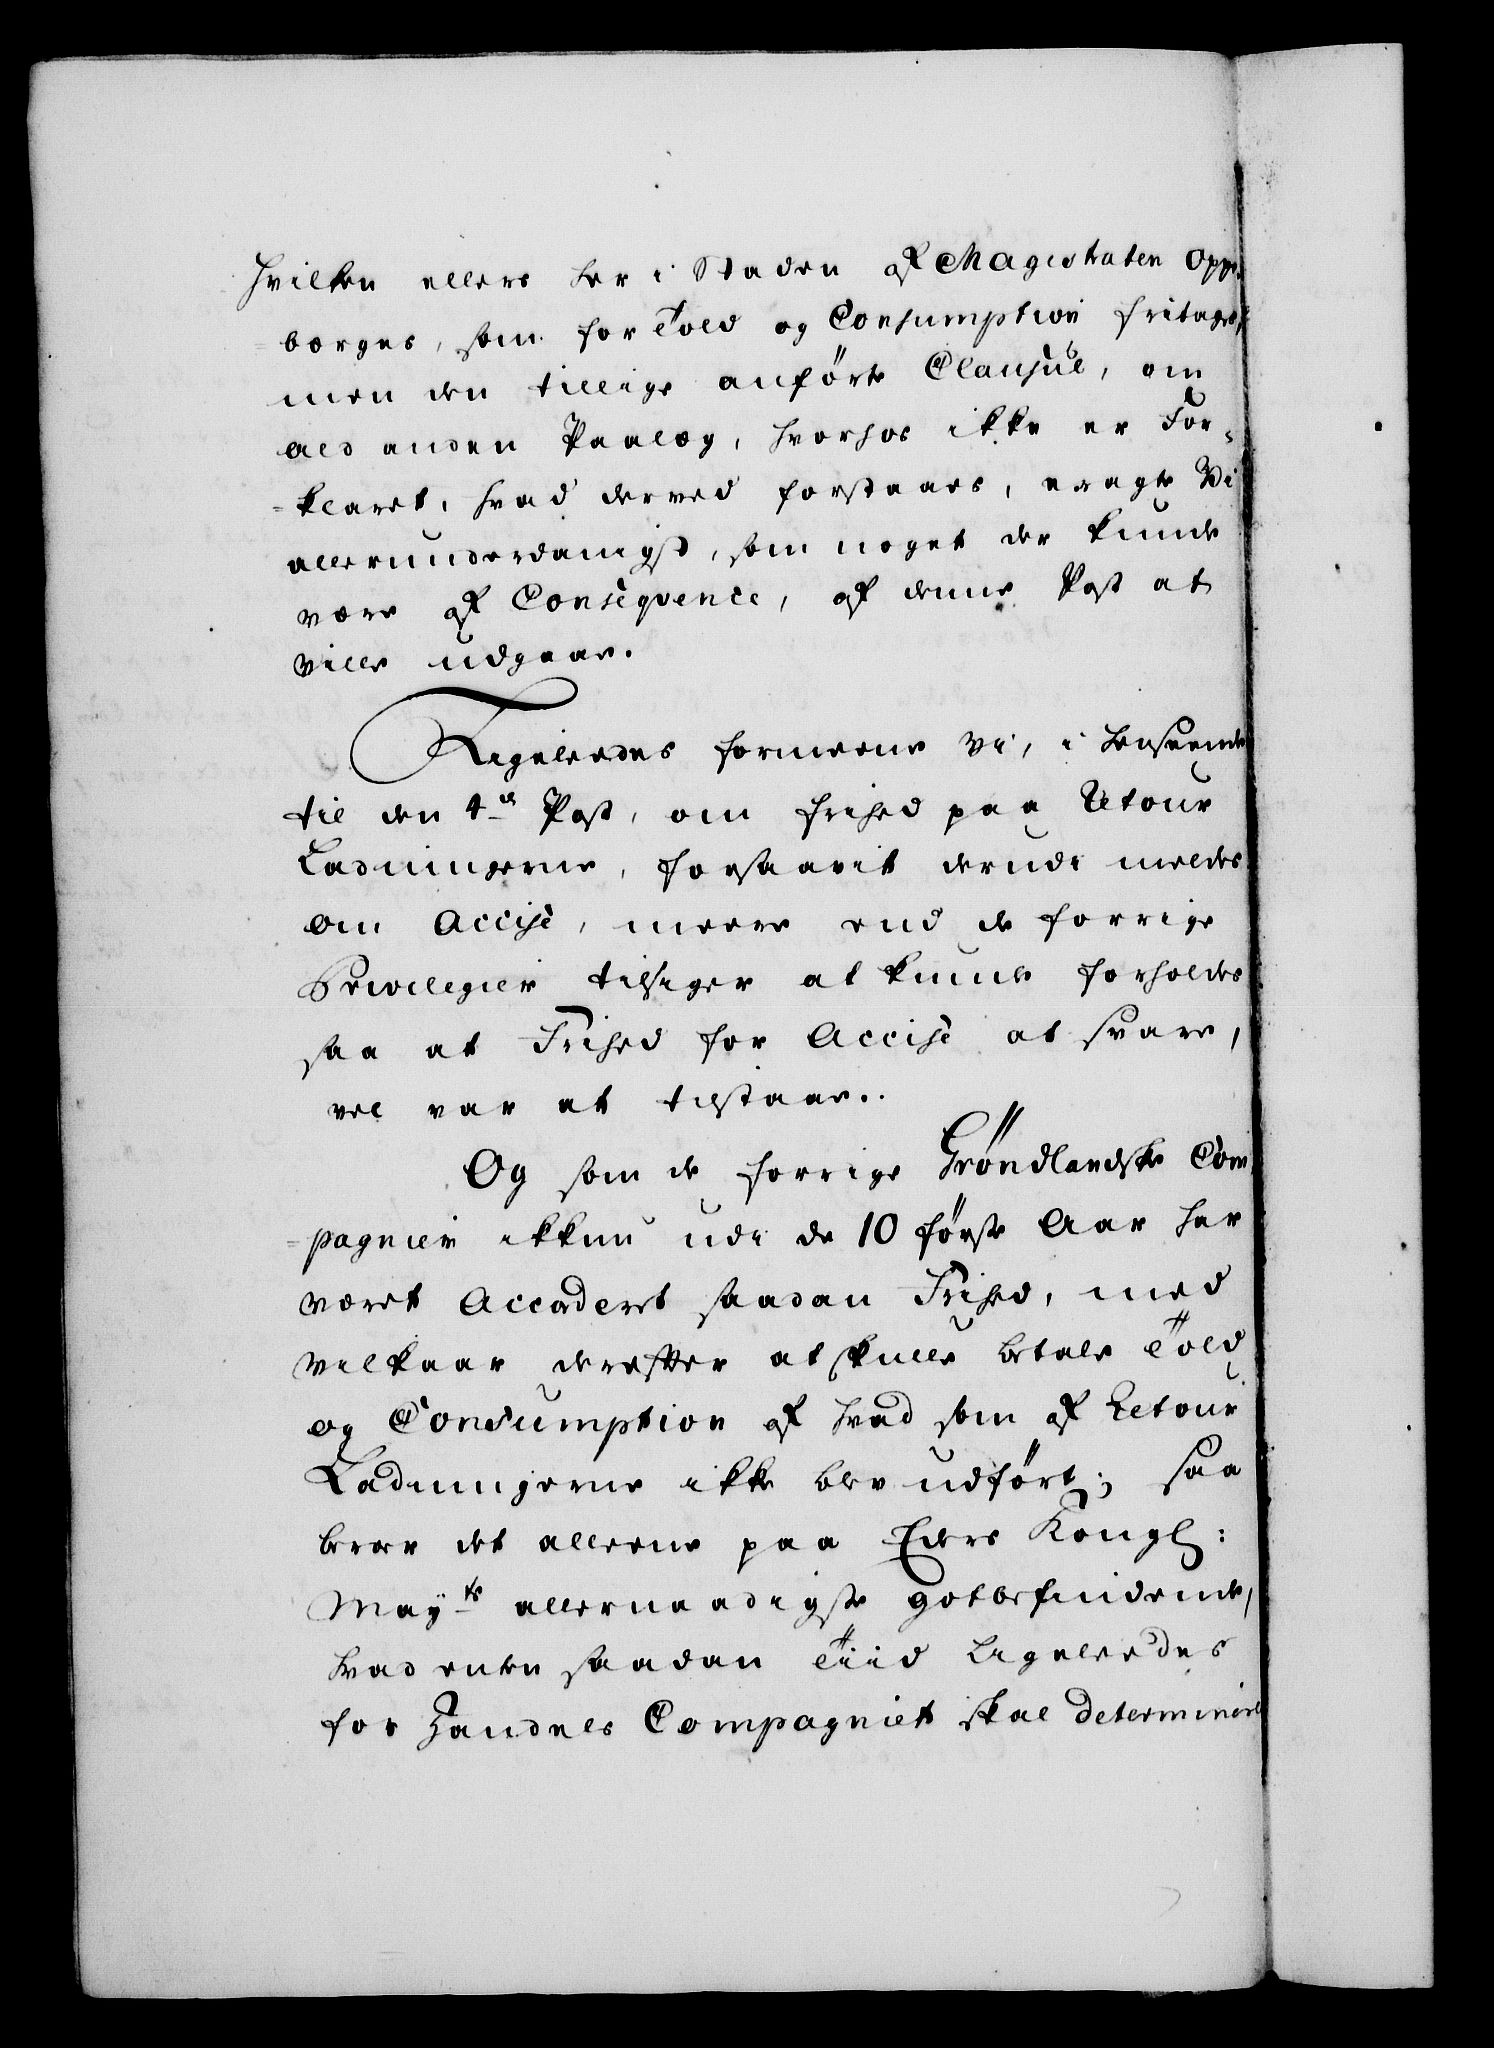 hvilken ellers her i Staden af Magistraten oppe-
=børges, som for Told og Consumption fritages,
men den tillige anførte Clausul, om
ald anden Paalæg, hvorhos ikke er For-
=klaret, hvad derved forstaaes, eragte Vi
allerunderdanigst, som noget der kunde
være af Conseqvence, af denne Post at
ville udgaae.
Ligeleedes formeene Vi, i henseende
til den 4de Post, om frihed paa Retour
Ladningerne, forsaavit derudi meldes
om Accise, meere end de forrige
Privilegier tilsiger at kunde forholdes
saa at Frihed for Accise at svare,
vel var at tilstaae.
Og som de forrige Grøndlandske Com
=pagnier ikkun udi de 10 første Aar har
været Accorderet saadan Frihed, med
vilkaar derefter at skulle betale Told
og Consumption af hvad som af Retour
Ladningerne ikke blev udført; saa
beroer det alleene paa Eders Kongl:
Mayts allernaadigste gotbefindende,
hvad enten saadan Tiid ligeleedes
for Handels Compagniet skal determineres